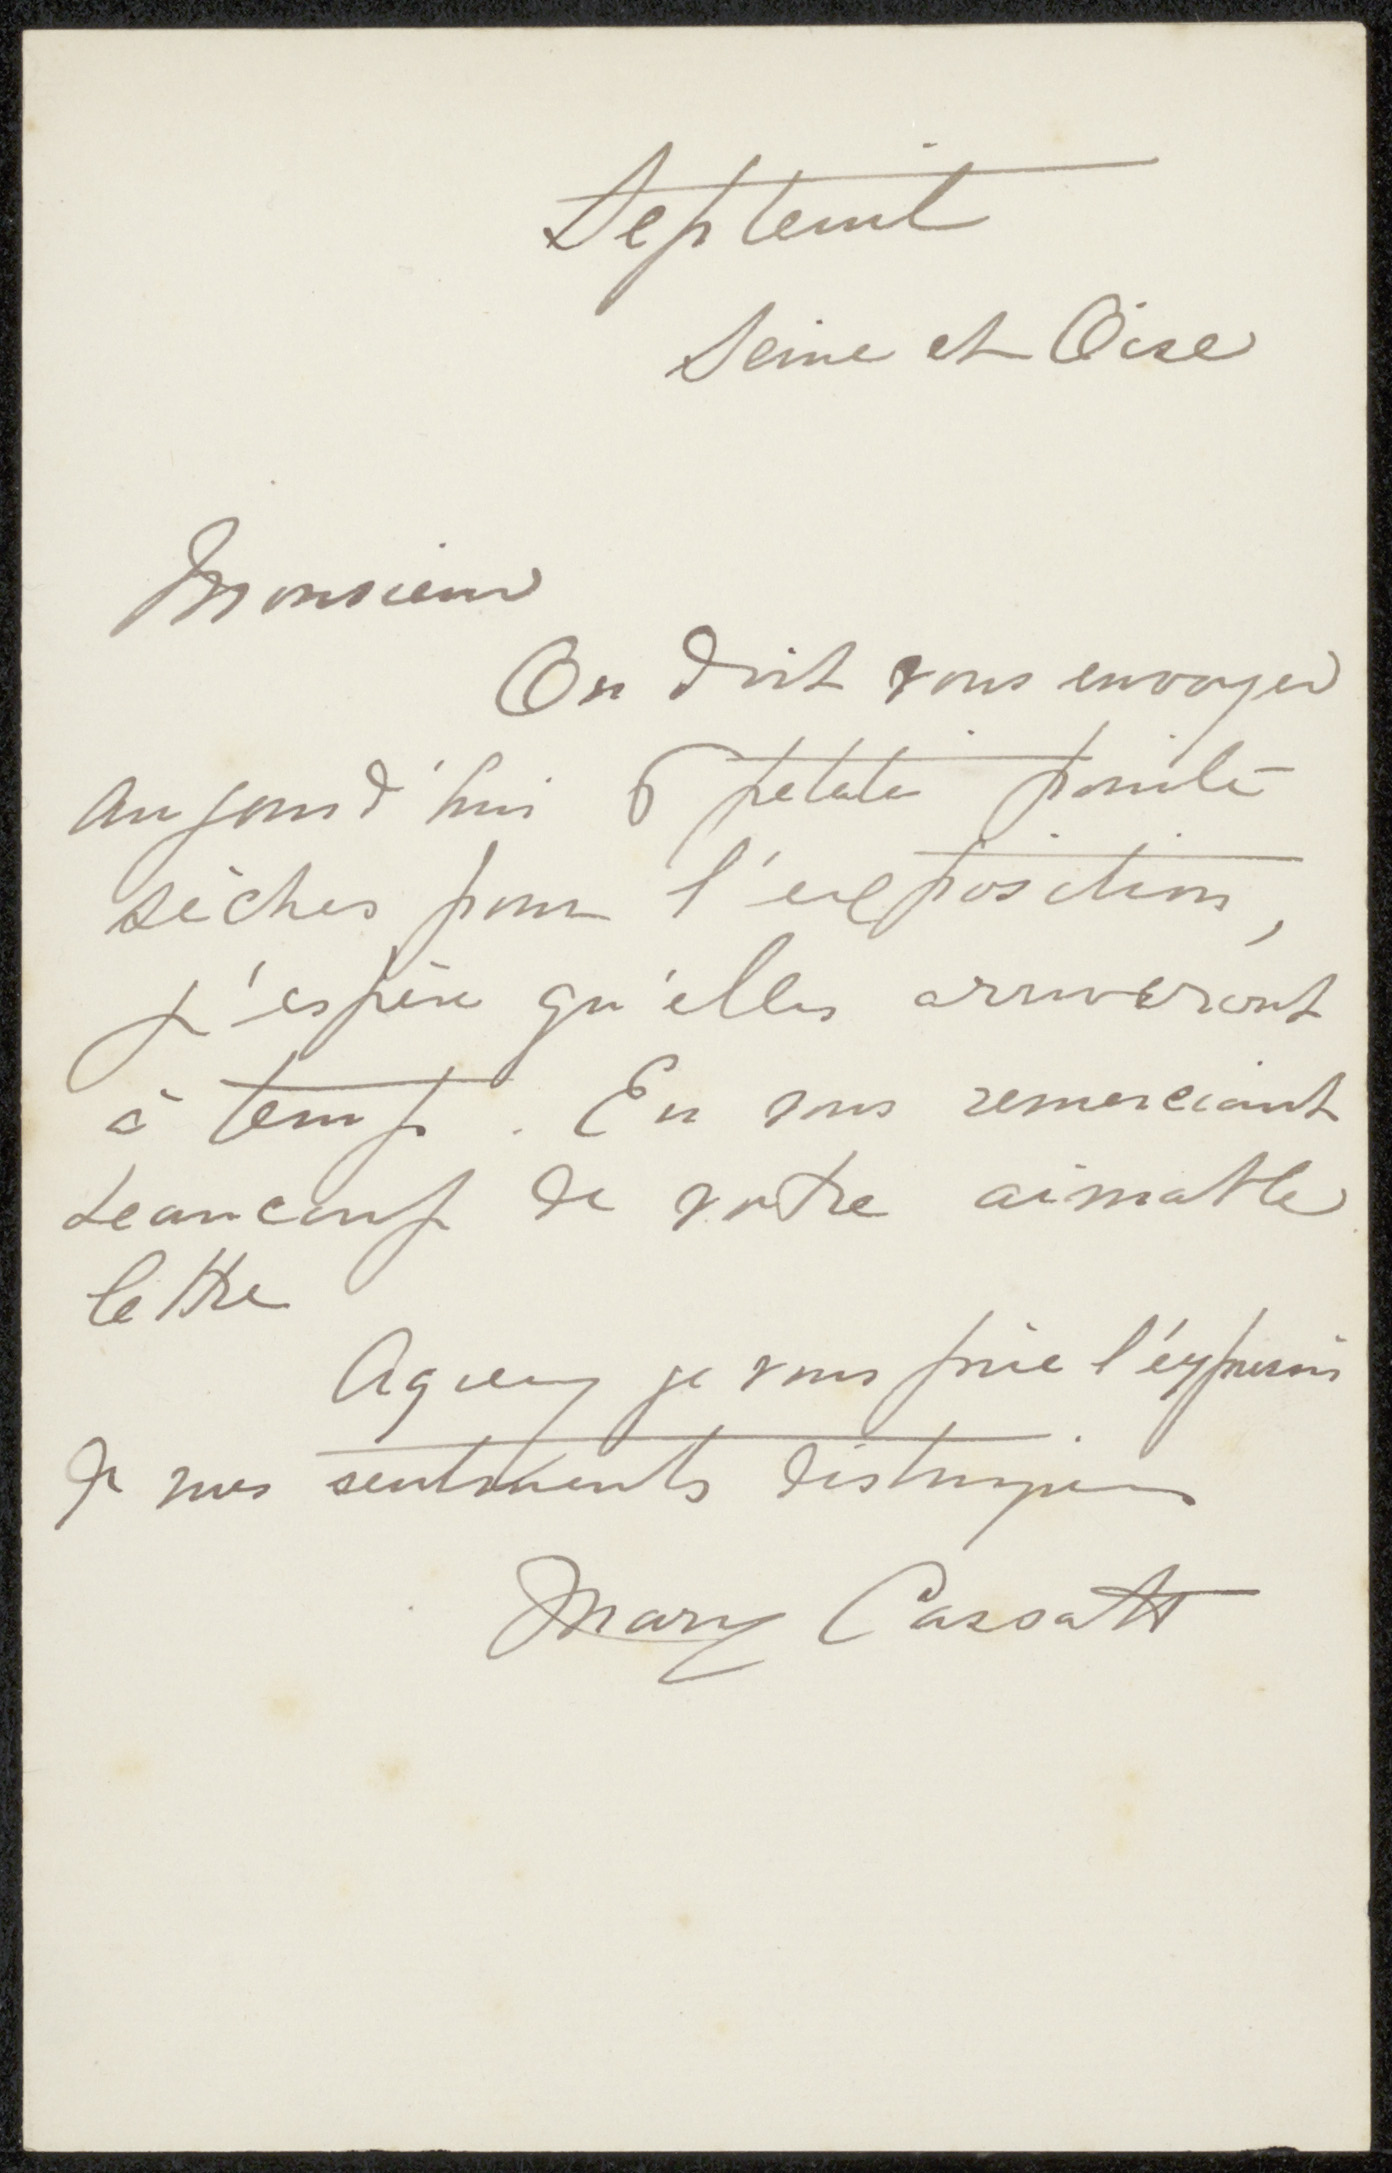 Septeuil
Seine et Oise
Monsieur
On doit vous envoyer
aujourd'hui 6 petite pointe
sèches pour l'exposition,
j'espère qu'elles arriveront
à temps. En vous remerciant
beaucoup de votre aimable
lettre
Agreez je vous prie l'expression
de mes sentiments distingués
Mary Cassatt